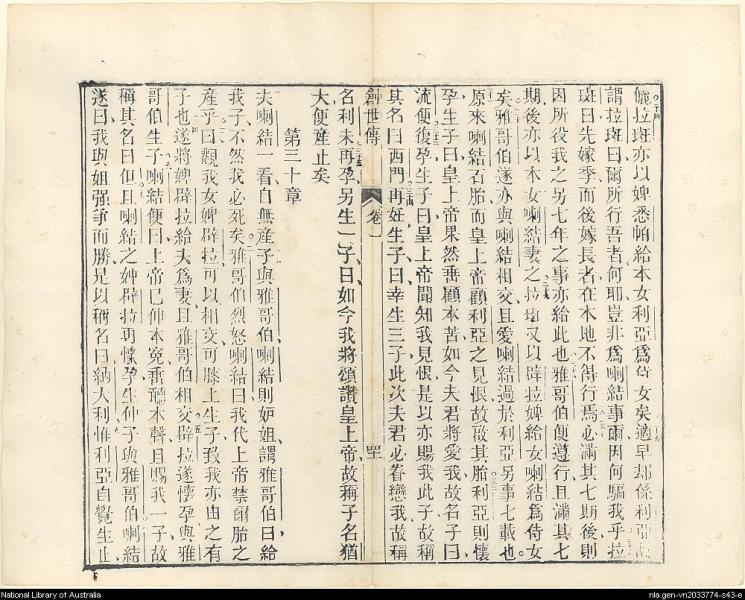 儷拉斑亦以婢悉帕給本女利亞爲侍女矣適早却係利亞
謂拉斑曰爾所行吾者何耶豈非爲喇結事爾因何騙我乎拉
斑曰先嫁季而後嫁長者在本地不得行焉必滿其七期後則
因所役我之另七年之事亦給此也雅哥伯便遵行且滿其七
期後亦以本女喇結妻之拉斑又以辟拉婢給女喇結爲侍女
矣雅哥伯遂亦與喇結相交且愛喇結過於利亞另事七載也
原來喇結石胎而皇上帝顧利亞之見恨故啟其胎利亞則懷
孕生子曰皇上帝果然垂顧本苦如今夫君將愛我故名子曰
流便復孕生子曰皇上帝聞知我見恨是以亦賜我此子故稱
其名曰西門再妊生子曰幸生三子此次夫君必眷戀我故稱
創世傳 卷一
名利未再孕另生一子曰如今我將頌讚皇上帝故稱子名猶
大便産止矣
第三十章
夫喇結一看自無産子與雅哥伯喇結則妒姐謂雅哥伯曰給
我子不然我必死矣雅哥伯烈怒喇結曰我代上帝禁爾胎之
産乎曰觀我女婢辟拉可以相交可膝上生子致我亦由之有
子也遂將婢辟拉給夫爲妻且雅哥伯相交辟拉遂懷孕與雅
哥伯生子喇結便曰上帝已伸本冤垂聽本聲且賜我一子故
稱其名曰但且喇結之婢辟拉再懷孕生仲子與雅哥伯喇結
遂曰我與姐强爭而勝是以稱名曰納大利惟利亞自覺生止
National Library of Australia
nla.gen-vn2033774-s43-e